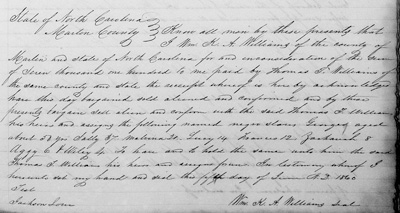 State of North Carolina
Martin County } Know all men by these presents that
I Wm. K. A. Williams of the county of
Martin and state of North Carolina for and in consideration of the sum
of Seven thousand one hundred to me paid by Thomas S. Williams of
the same county and state the receipt whereof is hereby acknowledged
have this day bargained sold aliened and conformed and by these
presents bargain sell alien and conform unto the said Thomas S Williams
his heirs and assigns the following named slaves George aged
about 52 yrs Sally 37 Malvina 21 Lucy 14 Frances 12 8
Aggy 6 & 4 To have and to hold the same unto him the said
Thomas S. Williams his heirs and assigns forever In testimony whereof I
hereunto set my hand and seal this fifth day of June A.D. 1860
Test
Wm. K. A. Williams Seal